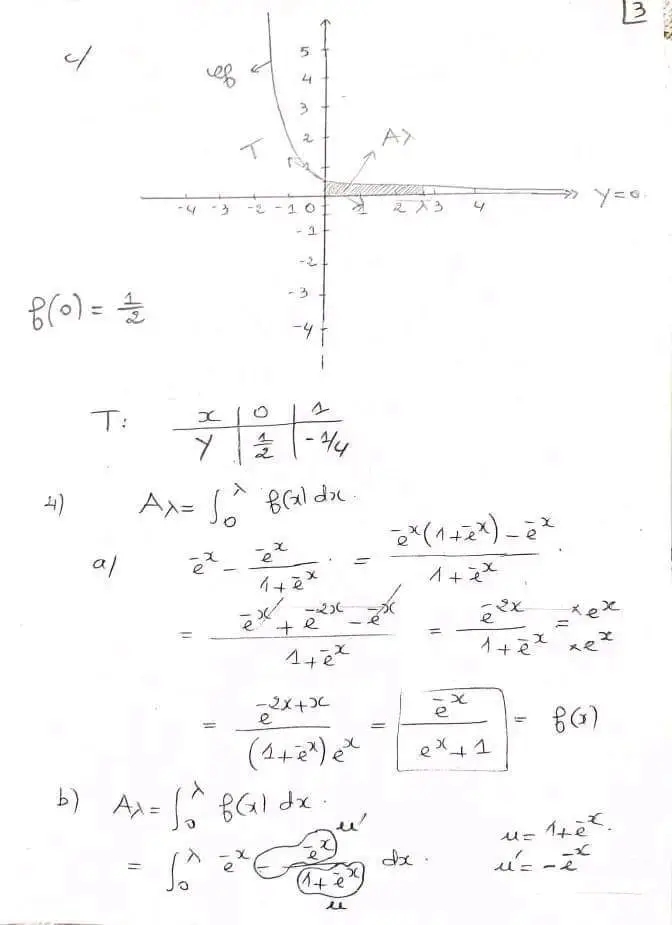 3
c/
5
4
3
2
1
Cf
T
Aλ
-4 -3 -2 -1 0 1 2 λ 3 4
y=0
-1
-2
-3
-4
f(0) = 1/2
T: x | 0 | 1
y | 1/2 | -1/4
4) Aλ = ∫₀^λ f(x) dx.
a/ e^-x - e^-x/(1+e^-x) = (e^-x(1+e^-x) - e^-x)/(1+e^-x).
= (e^-x + e^-2x - e^-x)/(1+e^-x) = e^-2x/(1+e^-x) = ×e^x / ×e^x
= e^(-2x+x)/((1+e^-x)e^x) = e^-x/(e^x+1) = f(x)
b) Aλ = ∫₀^λ f(x) dx.
= ∫₀^λ e^-x - e^-x/(1+e^-x) dx.
u'
u
u = 1+e^-x.
u' = -e^-x